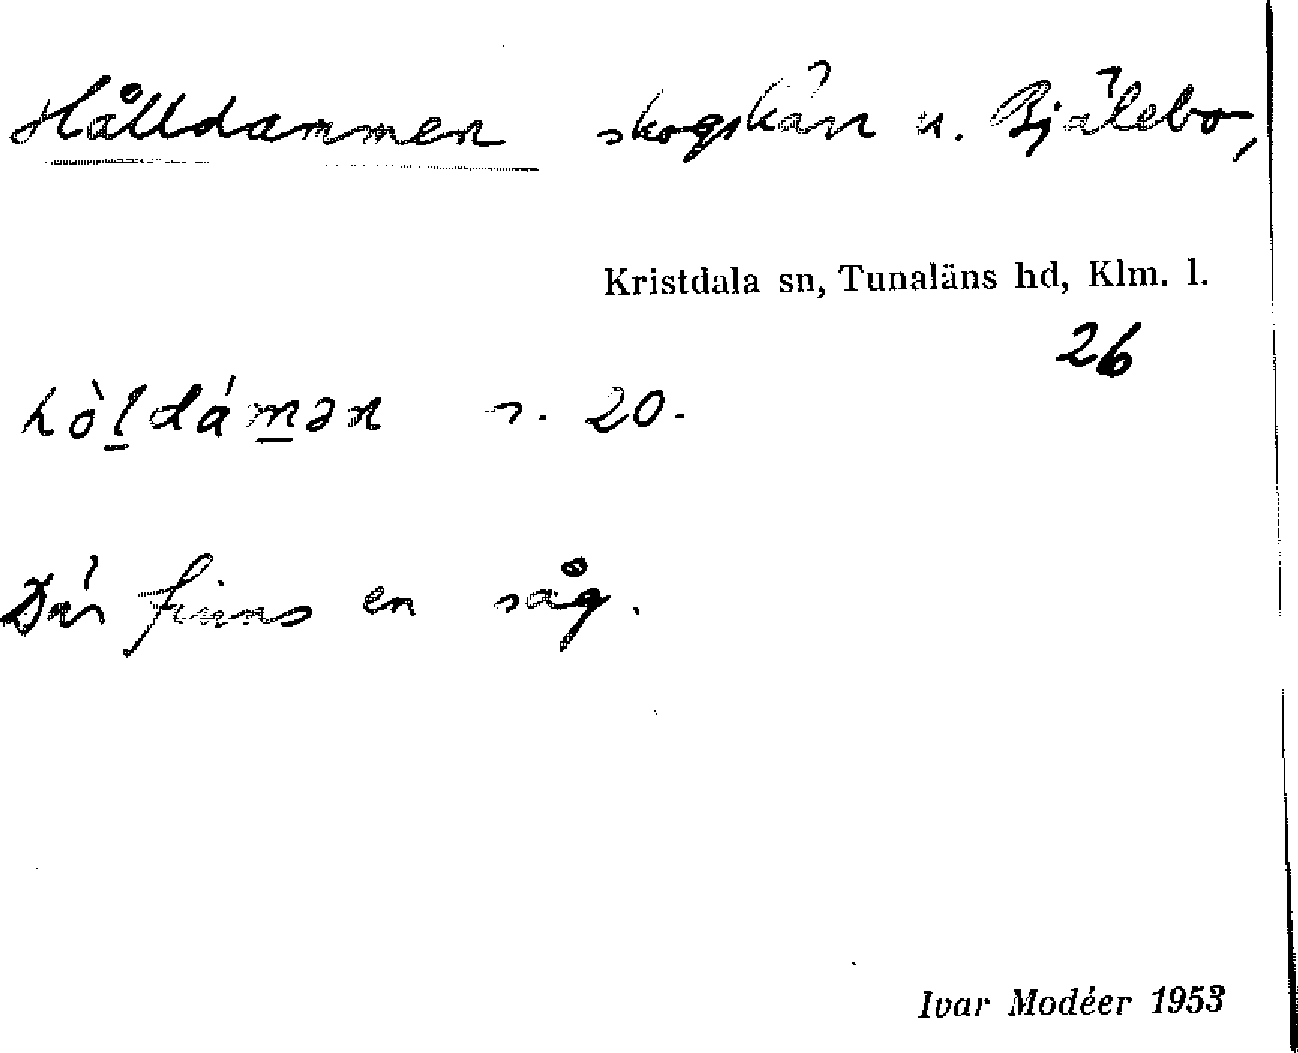 Hålldammen skogskärr u. Bjälebo,
Kristdala sn, Tunaläns hd, Klm. l.
26
hòl̲dám̲ən s. 20.
Där finns en såg.
Ivar Modéer 1953